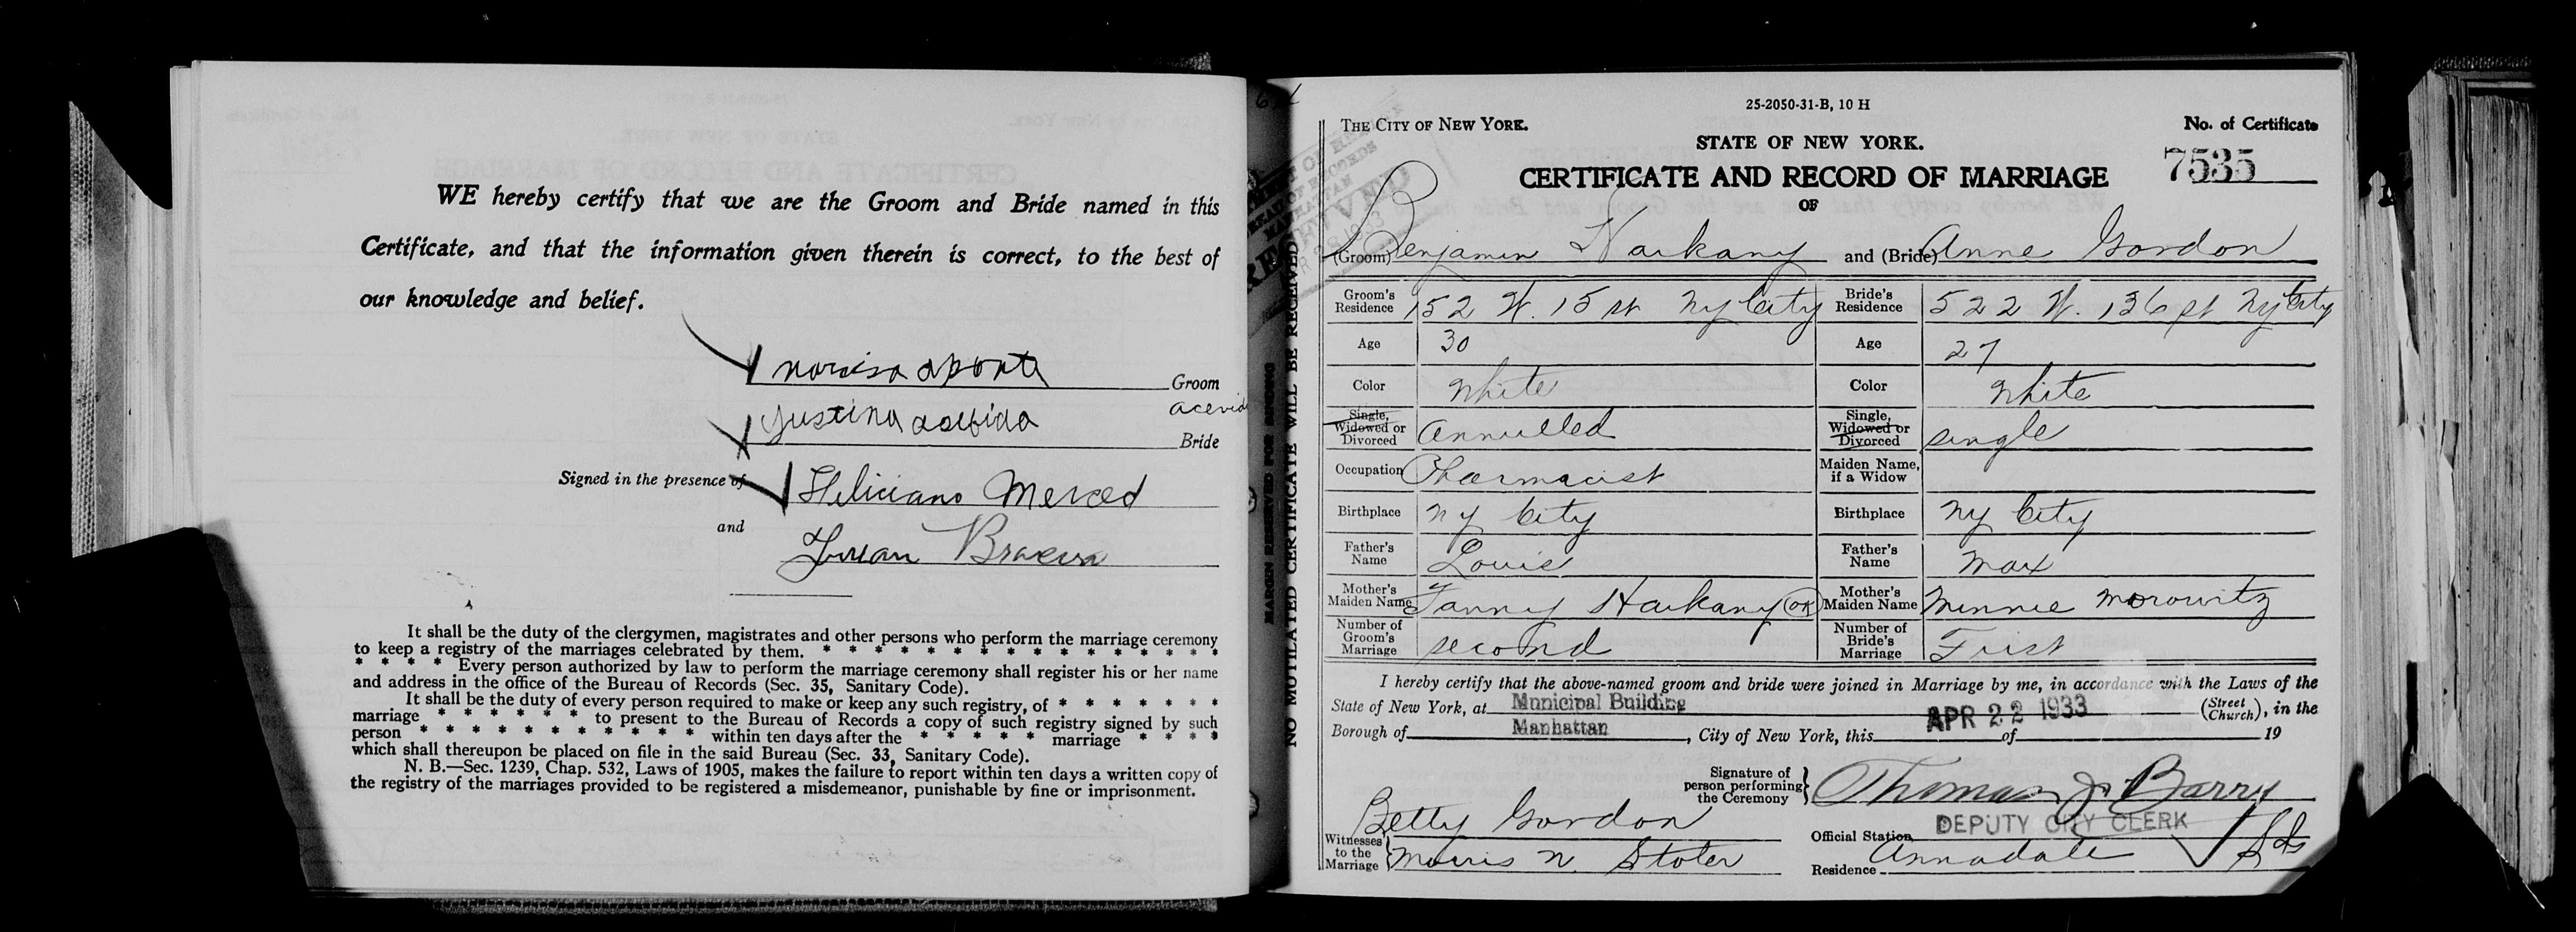 WE hereby certify that we are the Groom and Bride named in this
Certificate, and that the information given therein is correct, to the best of
our knowledge and belief.
Groom
Justina
Bride
Signed in the presence of Feliciano Merced
and
Juan
It shall be the duty of the clergymen, magistrates and other persons who perform the marriage ceremony
to keep a registry of the marriages celebrated by them. * * * * * * * * * * * * * * *
* * * * Every person authorized by law to perform the marriage ceremony shall register his or her name
and address in the office of the Bureau of Records (Sec. 35, Sanitary Code).
It shall be the duty of every person required to make or keep any such registry, of * * * * * * *
marriage * * * * * * to present to the Bureau of Records a copy of such registry signed by such
person * * * * * * * * * * * within ten days after the * * * * * marriage * * * *
which shall thereupon be placed on file in the said Bureau (Sec. 33, Sanitary Code).
N. B.—Sec. 1239, Chap. 532, Laws of 1905, makes the failure to report within ten days a written copy of
the registry of the marriages provided to be registered a misdemeanor, punishable by fine or imprisonment.
MARGIN RESERVED FOR BINDING
NO MUTILATED CERTIFICATE WILL BE RECEIVED
25-2050-31-B, 10 H
THE CITY OF NEW YORK.
No. of Certificate
STATE OF NEW YORK.
7535
CERTIFICATE AND RECORD OF MARRIAGE
OF
(Groom) Benjamin Harkany and (Bride) Anne Gordon
Groom's Residence 152 W. 15 st Ny City Bride's Residence 522 W. 136 st Ny City
Age 30 Age 27
Color White Color White
Single, Widowed or Divorced Annulled Single, Widowed or Divorced single
Occupation Pharmacist Maiden Name, if a Widow
Birthplace Ny City Birthplace Ny City
Father's Name Louis Father's Name Max
Mother's Maiden Name Fanny Harkany OK Mother's Maiden Name Minnie Morowitz
Number of Groom's Marriage second Number of Bride's Marriage First
I hereby certify that the above-named groom and bride were joined in Marriage by me, in accordance with the Laws of the
State of New York, at Municipal Building (Street Church), in the
Borough of Manhattan, City of New York, this APR 22 1933 of 19
Signature of person performing the Ceremony Thomas J. Barry
Betty Gordon
Official Station DEPUTY CITY CLERK
Witnesses to the Marriage Morris N. Stoler
Residence Annadale